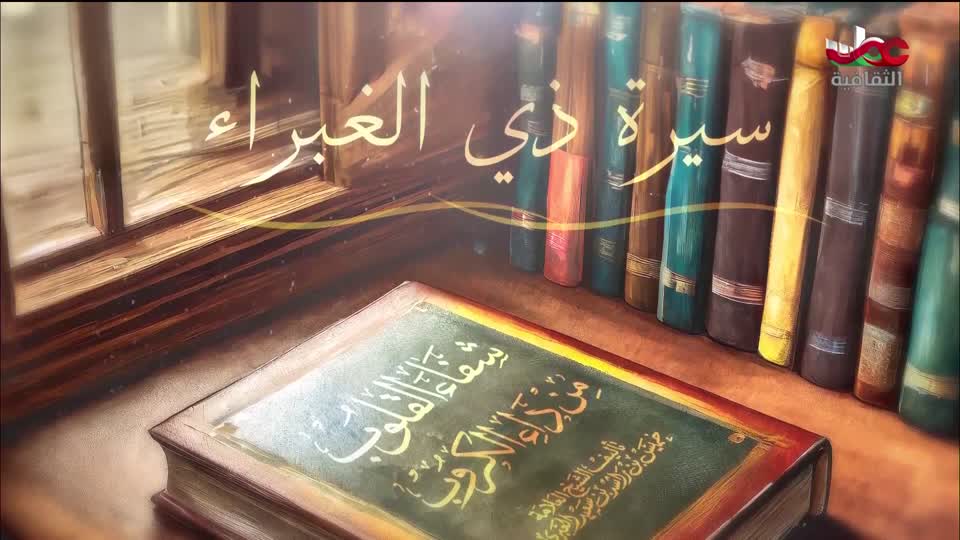 عمان
الثقافية
سيرة ذي الغبراء
شفاء القلوب
من داء الكروب
تأليف الشيخ العلامة